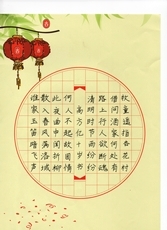 谁家玉笛暗飞声
散入春风满洛城
此夜曲中闻折柳
何人不起故园情
高方亿十岁书
清明时节雨纷纷
路上行人欲断魂
借问酒家何处有
牧童遥指杏花村